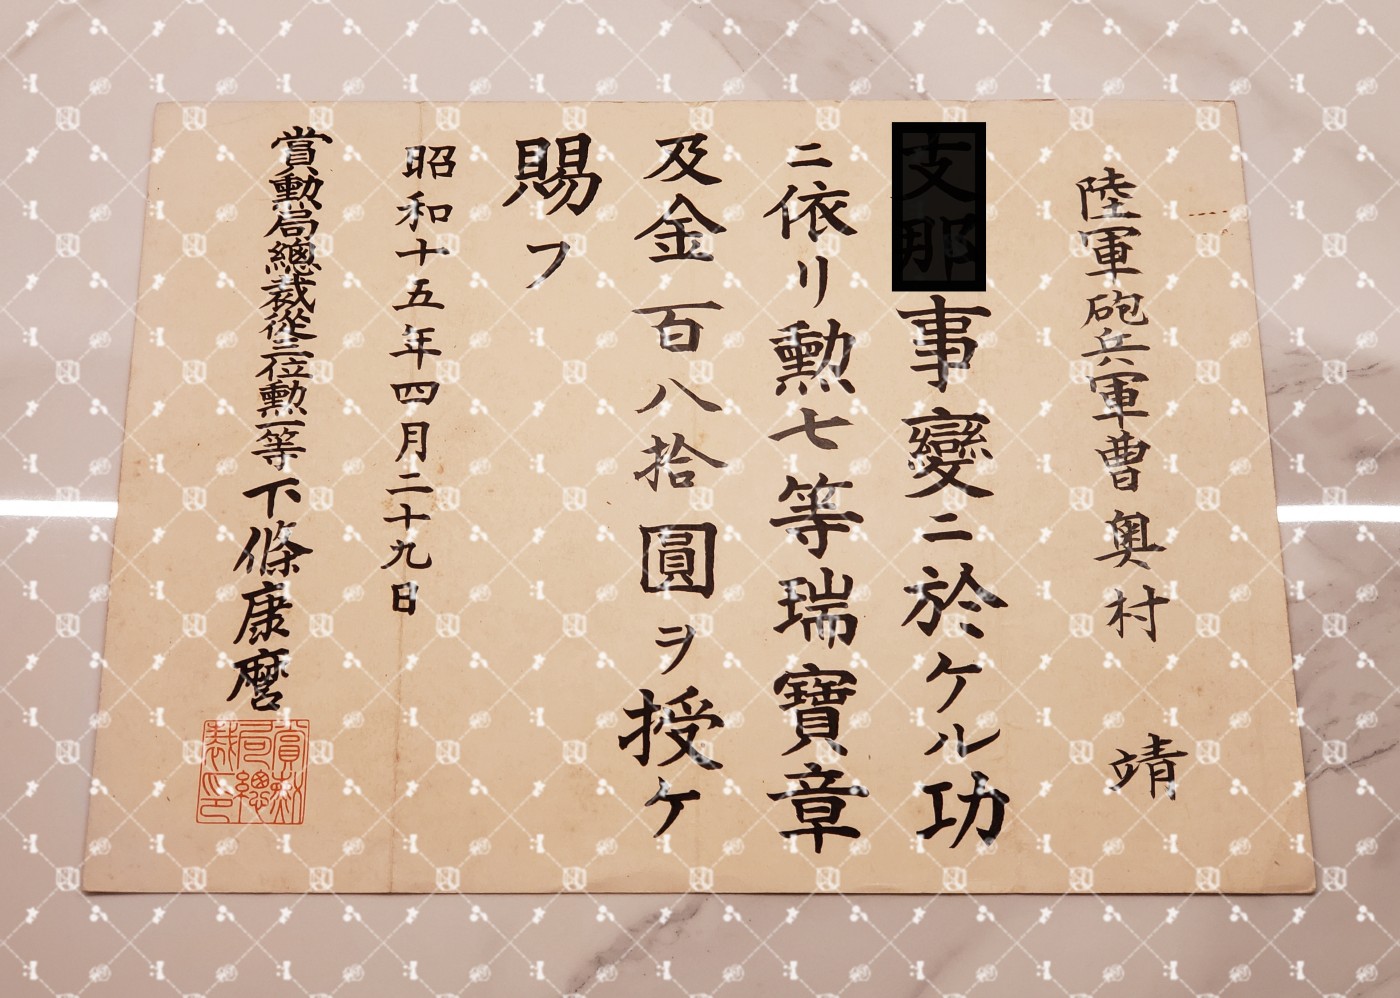 陸軍砲兵軍曹奥村靖
支那事變ニ於ケル功
ニ依リ勳七等瑞寶章
及金百八拾圓ヲ授ケ
賜フ
昭和十五年四月二十九日
賞勳局總裁從三位勳一等下條康麿
賞勳
局總
裁印